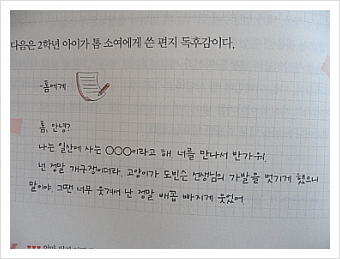 다음은 2학년 아이가 톰 소여에게 쓴 편지 독후감이다.
-톰에게
톰, 안녕?
나는 일산에 사는 ○○○이라고 해. 너를 만나서 반가워.
넌 정말 개구쟁이더라. 고양이가 도빈슨 선생님의 가발을 벗기게 했으니
말이야. 그땐 너무 웃겨서 난 정말 배꼽 빠지게 웃었어.